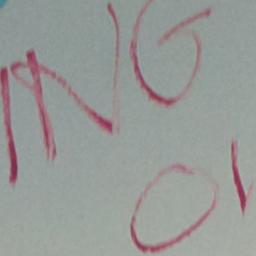 ING
O